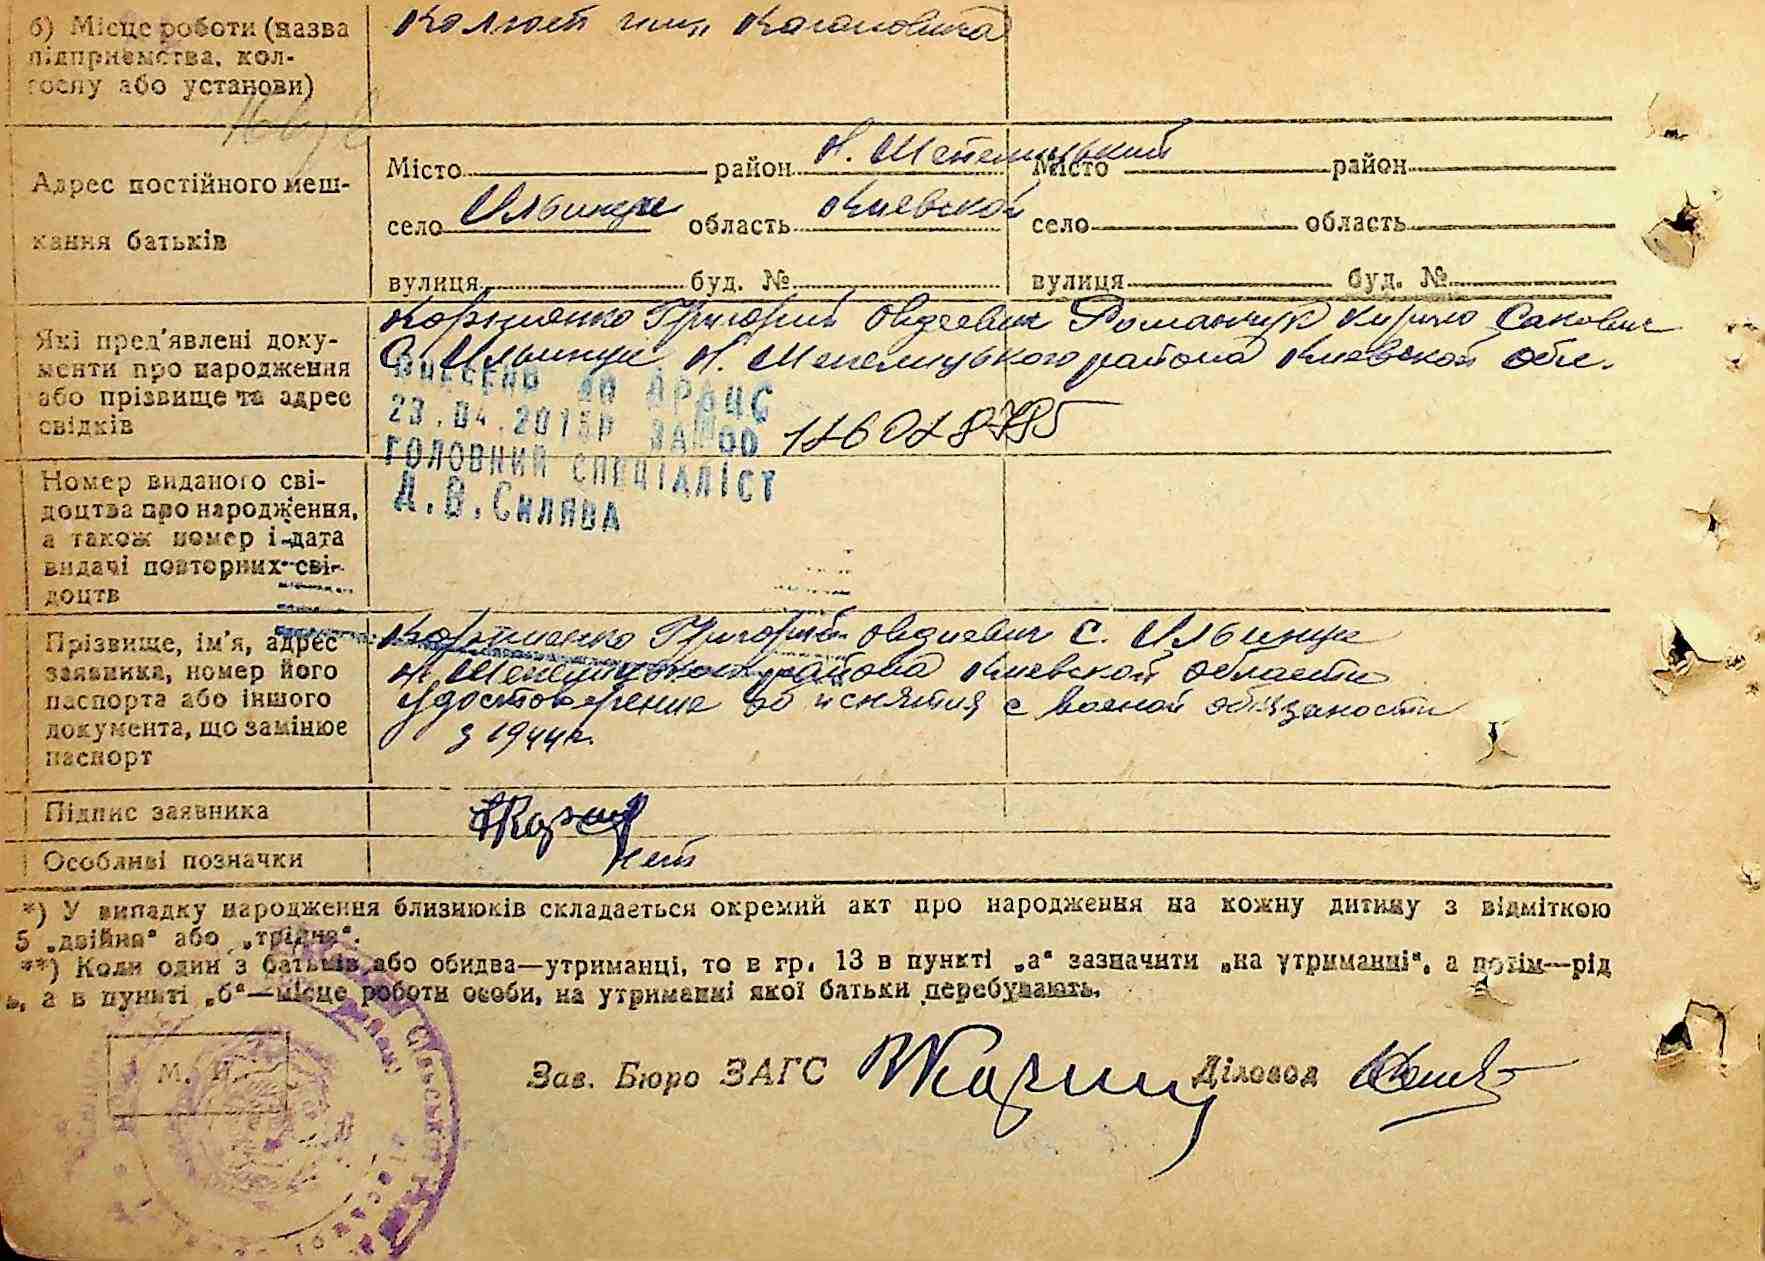 б) Місце роботи (назва
підприємства, кол-
госпу або установи)
Колхоз имн Кагановича
Адрес постійного меш-
кання батьків
Місто район Н. Шепелицький
село Ильинцы область Киевской
вулиця буд. №
Місто район
село область
вулиця буд. №
Які пред'явлені доку-
менти про народження
або прізвище та адрес
свідків
Корниенко Григорий Овдеевич Романчук Кирило Сакович
С. Ильинцы Н. Шепелицького района Киевской обл.
ВНЕСЕНО ДО ДРАЦС
23.04.2015Р ЗА №00
ГОЛОВНИЙ СПЕЦІАЛІСТ
Д.В.Силява
Номер виданого сві-
доцтва про народження,
а також номер і дата
видачі повторних сві-
доцтв
Прізвище, ім'я, адрес
заявника, номер його
паспорта або іншого
документа, що замінює
паспорт
Корниенко Григорий Овдиевич С. Ильинцы
Н. Шепелицького района Киевской области
Удостоверение об иснятия с военой обязаности
з 1944г.
Підпис заявника
Особливі позначки
Нет
*) У випадку народження близнюків складається окремий акт про народження на кожну дитину з відміткою
5 „двійня“ або „трійня“.
**) Коли один з батьків або обидва—утриманці, то в гр. 13 в пункті „а“ зазначити „на утриманні“, а потім—рід
, а в пункті „б“—місце роботи особи, на утриманні якої батьки перебувають.
М. П.
Зав. Бюро ЗАГС Діловод